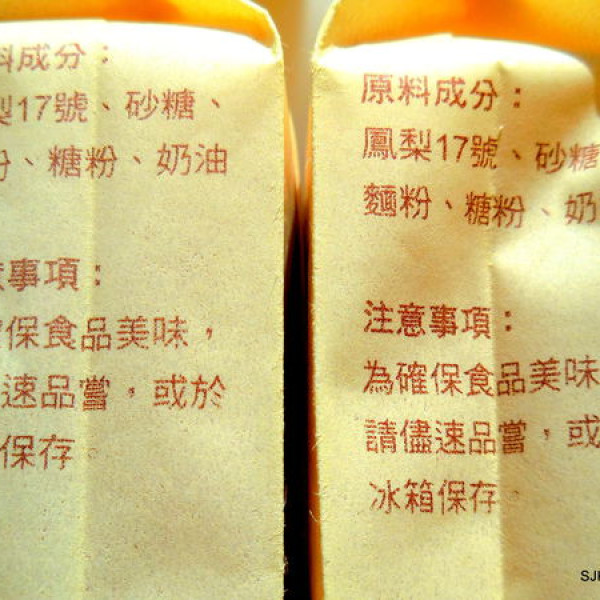 料成分：
梨17號、砂糖、
粉、糖粉、奶油
意事項：
確保食品美味，
速品嘗，或於
保存。
原料成分：
鳳梨17號、砂糖
麵粉、糖粉、奶
注意事項：
為確保食品美味
請儘速品嘗，或
冰箱保存。